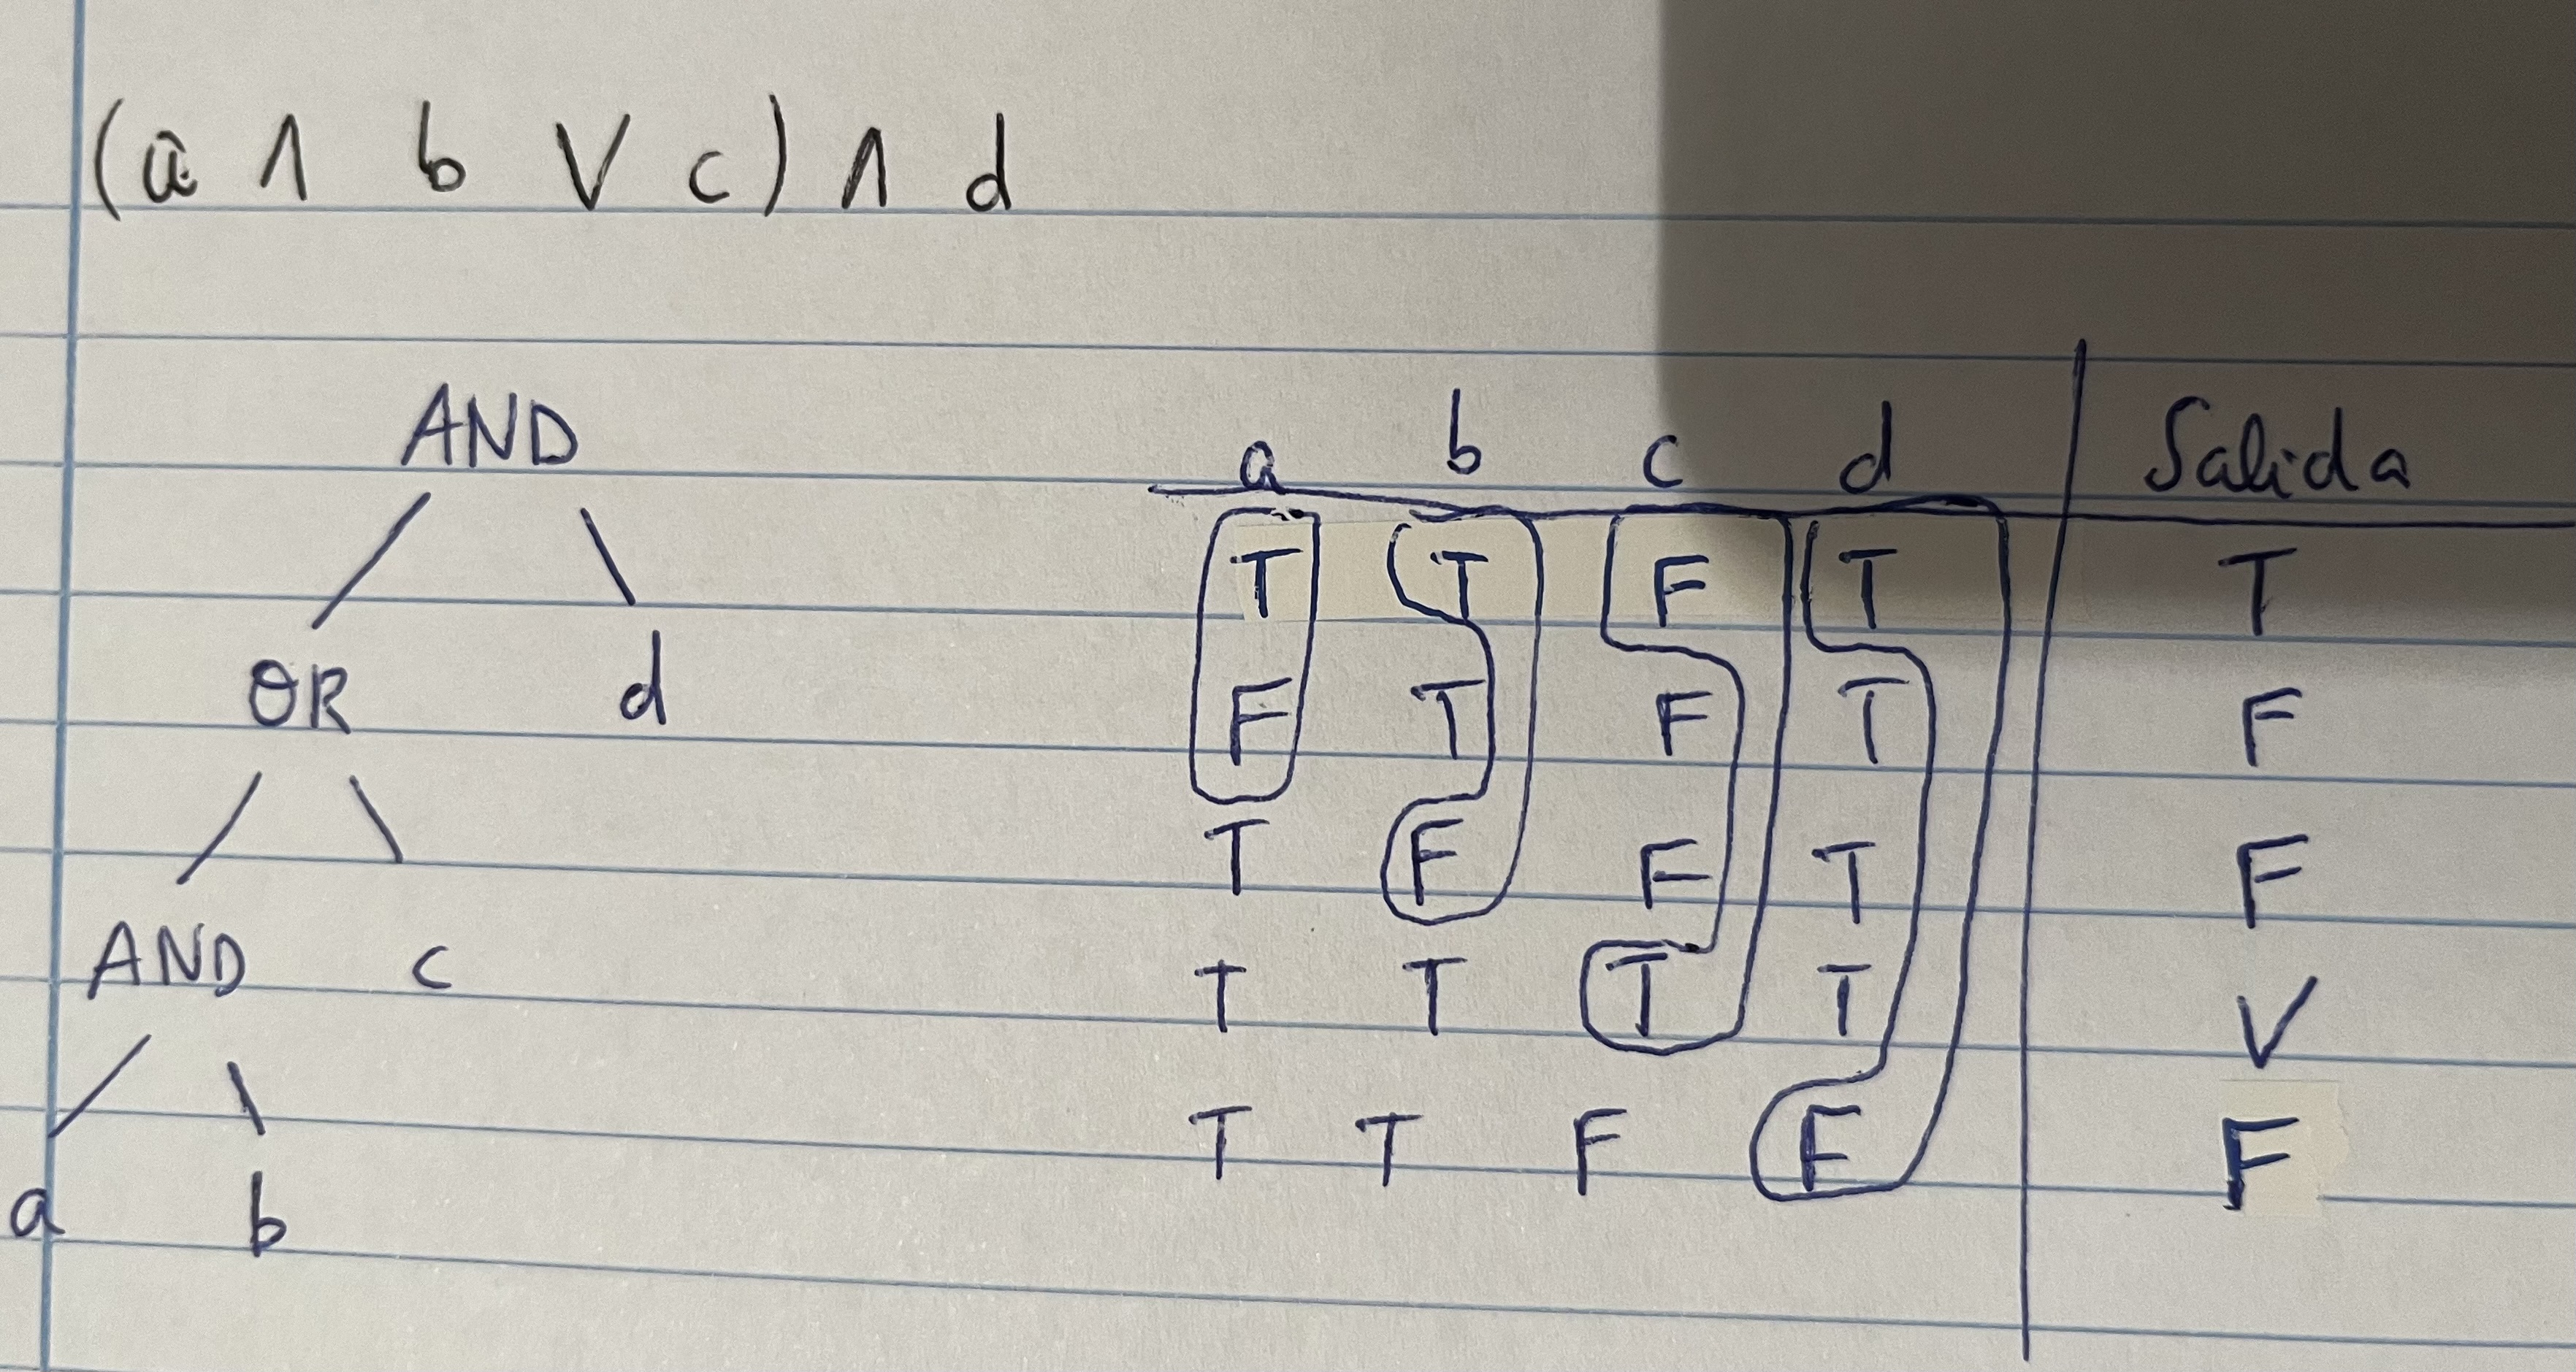 (a ∧ b ∨ c) ∧ d
AND
OR d
AND c
a b
a b c d Salida
T T F T T
F T F T F
T F F T F
T T T T V
T T F F F